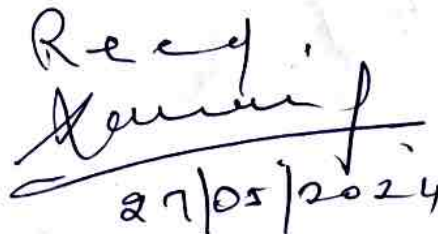 Recd.
27/05/2024